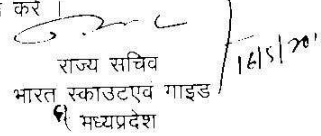 करे ।
राज्य सचिव
भारत स्काउटएवं गाइड
मध्यप्रदेश